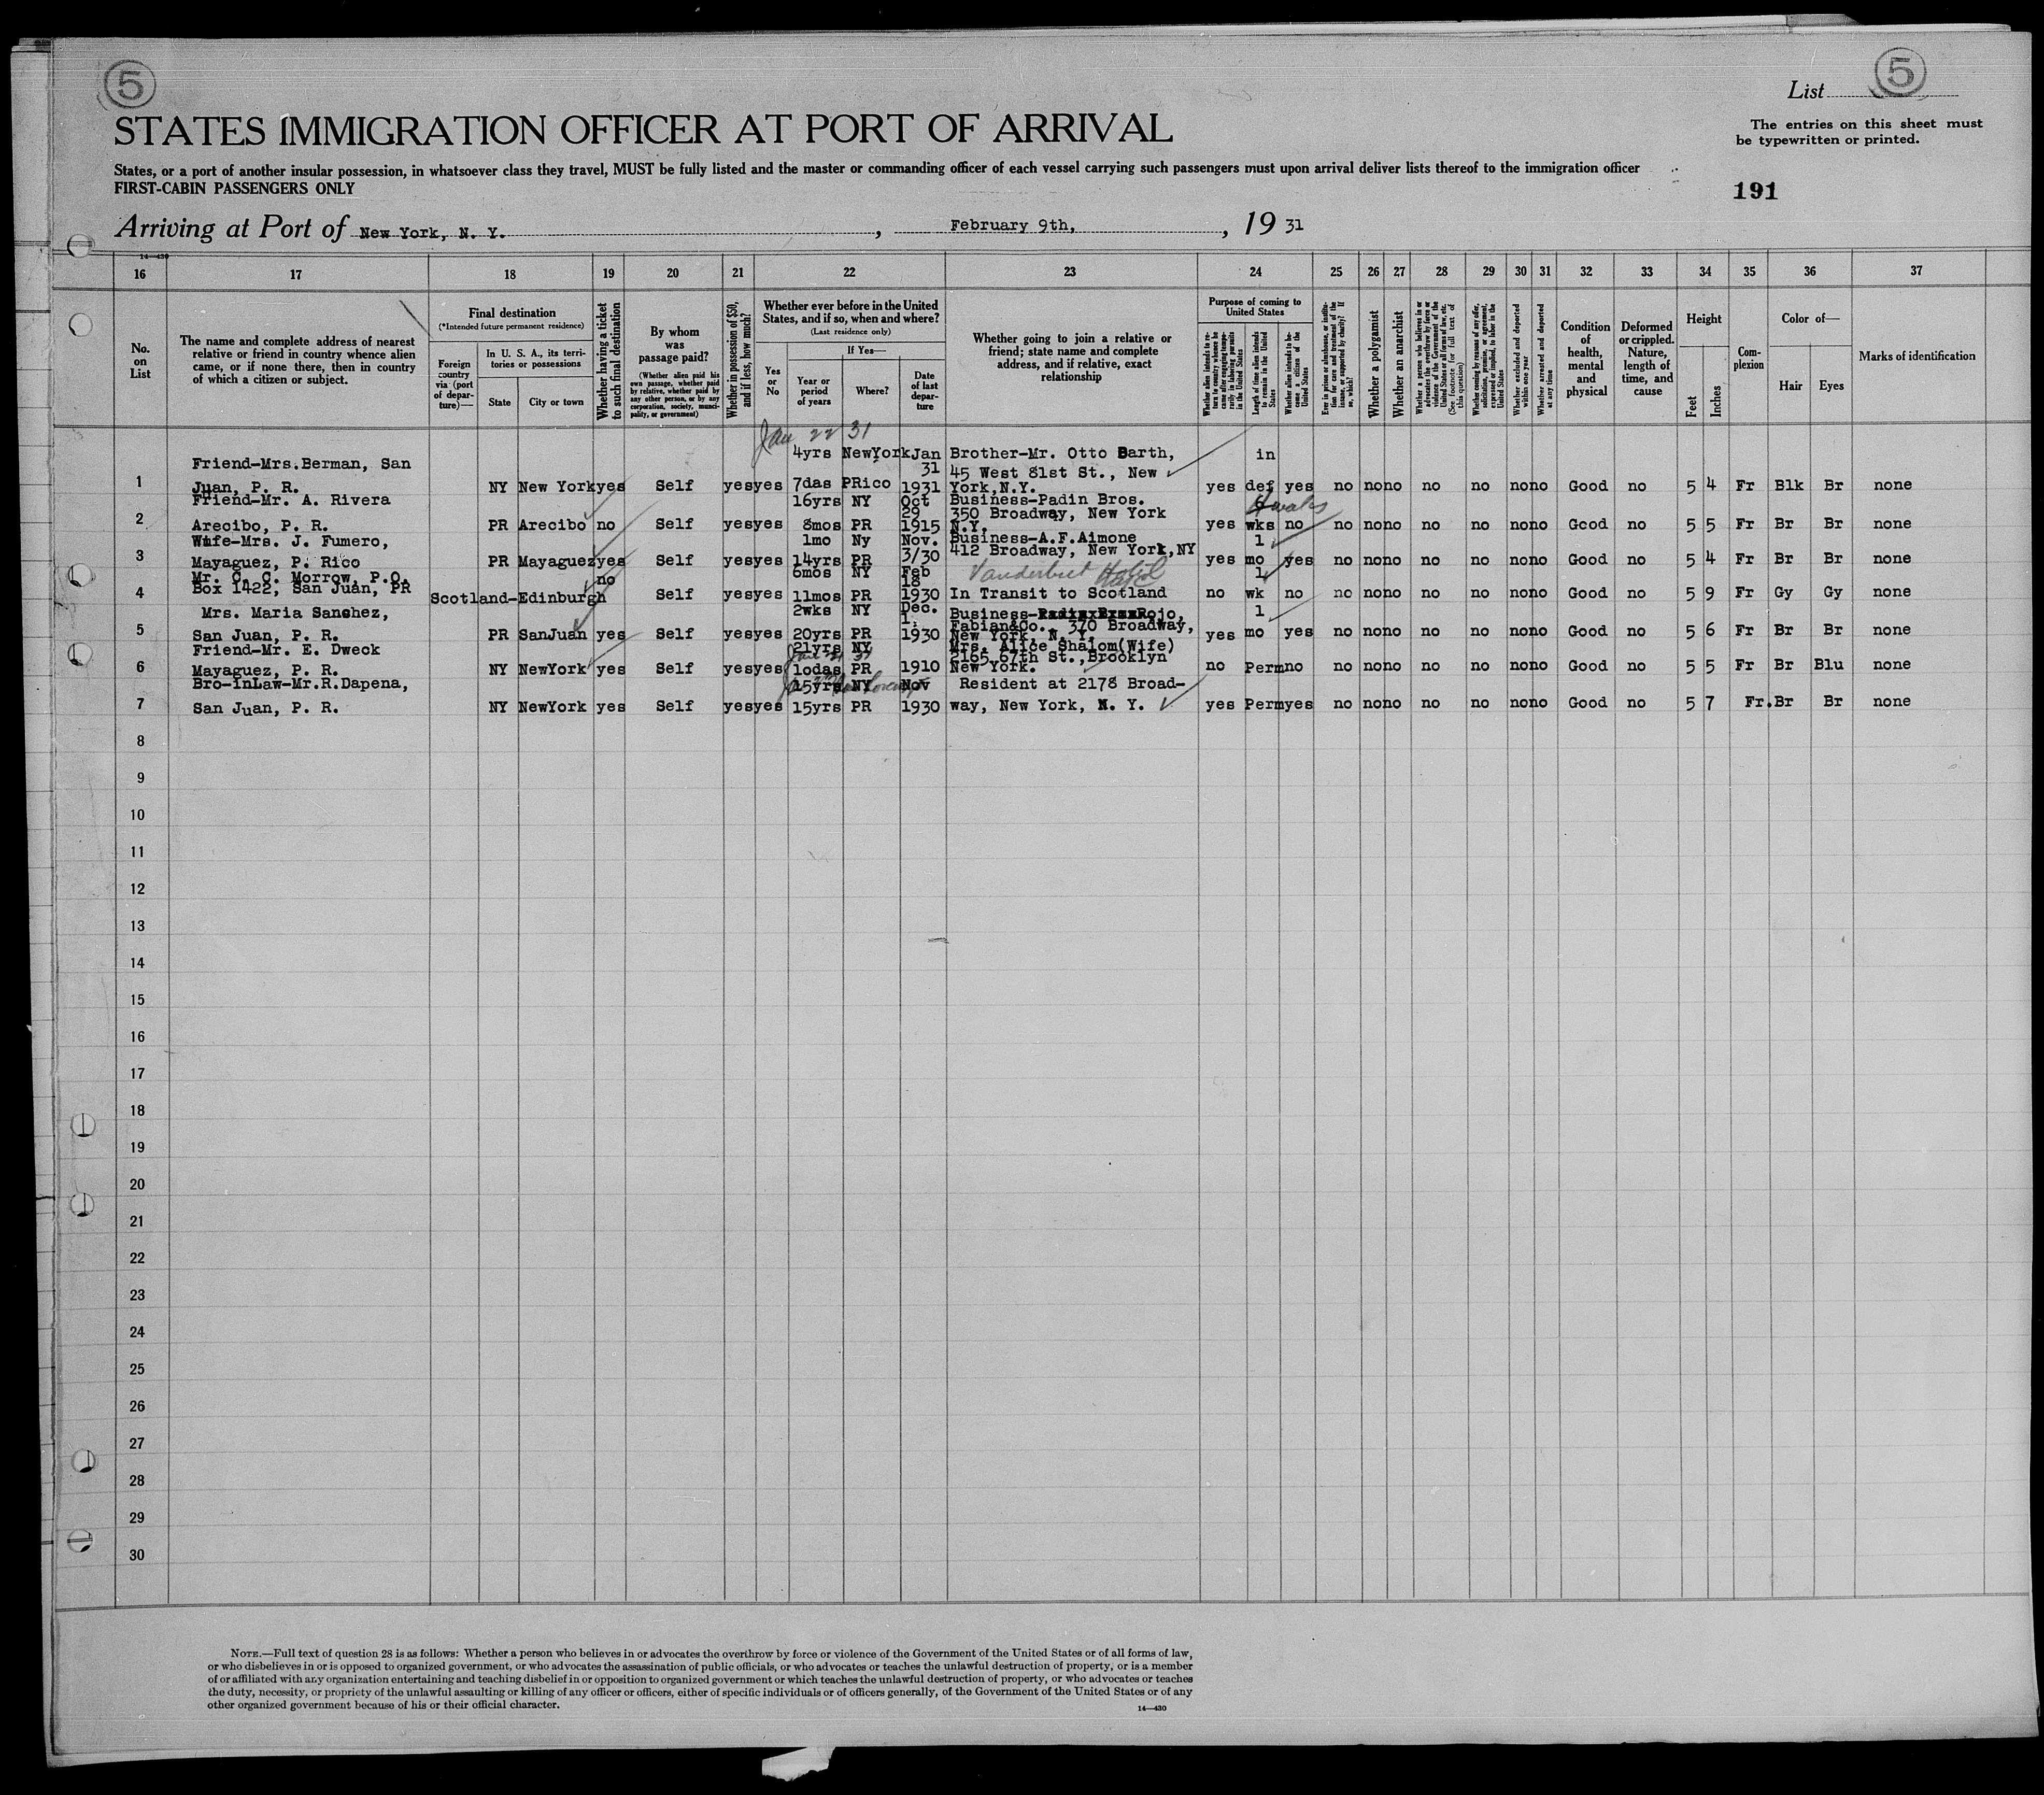 5
List 5
STATES IMMIGRATION OFFICER AT PORT OF ARRIVAL
The entries on this sheet must
be typewritten or printed.
States, or a port of another insular possession, in whatsoever class they travel, MUST be fully listed and the master or commanding officer of each vessel carrying such passengers must upon arrival deliver lists thereof to the immigration officer
FIRST-CABIN PASSENGERS ONLY
191
Arriving at Port of New York, N. Y. , February 9th, , 19 31
14—430
16 17 18 19 20 21 22 23 24 25 26 27 28 29 30 31 32 33 34 35 36 37
No. on List
The name and complete address of nearest relative or friend in country whence alien came, or if none there, then in country of which a citizen or subject.
Final destination
(*Intended future permanent residence)
Foreign country via (port of departure)—
In U. S. A., its territories or possessions
State City or town
Whether having a ticket to such final destination
By whom was passage paid?
(Whether alien paid his own passage, whether paid by relative, whether paid by any other person, or by any corporation, society, municipality, or government)
Whether in possession of $50, and if less, how much?
Whether ever before in the United States, and if so, when and where?
(Last residence only)
Yes or No
If Yes—
Year or period of years Where? Date of last departure
Whether going to join a relative or friend; state name and complete address, and if relative, exact relationship
Purpose of coming to United States
Whether alien intends to return to country whence he came after engaging temporarily in laboring pursuits in the United States
Length of time alien intends to remain in the United States
Whether alien intends to become a citizen of the United States
Ever in prison or almshouse, or institution for care and treatment of the insane, or supported by charity? If so, which?
Whether a polygamist
Whether an anarchist
Whether a person who believes in or advocates the overthrow by force or violence of the Government of the United States or all forms of law, etc. (See footnote for full text of this question)
Whether coming by reason of any offer, solicitation, promise, or agreement, expressed or implied, to labor in the United States
Whether excluded and deported within one year
Whether arrested and deported at any time
Condition of health, mental and physical
Deformed or crippled. Nature, length of time, and cause
Height
Feet Inches
Complexion
Color of—
Hair Eyes
Marks of identification
Jan 22 31
4yrs NewYork Jan Brother-Mr. Otto Barth, in
Friend-Mrs.Berman, San 31 45 West 81st St., New
1 Juan, P. R. NY New York yes Self yes yes 7das PRico 1931 York,N.Y. yes def yes no no no no no no no Good no 5 4 Fr Blk Br none
Friend-Mr. A. Rivera 16yrs NY Oct Business-Padin Bros. 4 weeks
29 350 Broadway, New York
2 Arecibo, P. R. PR Arecibo no Self yes yes 8mos PR 1915 N.Y. yes wks no no no no no no no no Good no 5 5 Fr Br Br none
Wife-Mrs. J. Fumero, 1mo Ny Nov. Business-A.F.Aimone 1
3 Mayaguez, P. Rico PR Mayaguez yes Self yes yes 14yrs PR 3/30 412 Broadway, New York,NY yes mo yes no no no no no no no Good no 5 4 Fr Br Br none
Mr. C. C. Morrow, P.O. no 6mos NY Feb Vanderbilt Hotel 1
Box 1422, San Juan, PR 18
4 Scotland-Edinburgh Self yes yes 11mos PR 1930 In Transit to Scotland no wk no no no no no no no no Good no 5 9 Fr Gy Gy none
Mrs. Maria Sanchez, 2wks NY Dec. Business- Rojo, 1
1, Fabian&Co. 370 Broadway,
5 San Juan, P. R. PR SanJuan yes Self yes yes 20yrs PR 1930 New York, N. Y. yes mo yes no no no no no no no Good no 5 6 Fr Br Br none
Friend-Mr. E. Dweck 21yrs NY Mrs. Alice Shalom(Wife)
Jan 21 31 2165 67th St.,Brooklyn
6 Mayaguez, P. R. NY NewYork yes Self yes yes 10das PR 1910 New York. no Perm no no no no no no no no Good no 5 5 Fr Br Blu none
Bro-inLaw-Mr.R.Dapena, 15yrs NY Nov Resident at 2178 Broad-
7 San Juan, P. R. NY NewYork yes Self yes yes 15yrs PR 1930 way, New York, N. Y. yes Perm yes no no no no no no no Good no 5 7 Fr. Br Br none
8
9
10
11
12
13
14
15
16
17
18
19
20
21
22
23
24
25
26
27
28
29
30
NOTE.—Full text of question 28 is as follows: Whether a person who believes in or advocates the overthrow by force or violence of the Government of the United States or of all forms of law,
or who disbelieves in or is opposed to organized government, or who advocates the assassination of public officials, or who advocates or teaches the unlawful destruction of property, or is a member
of or affiliated with any organization entertaining and teaching disbelief in or opposition to organized government or which teaches the unlawful destruction of property, or who advocates or teaches
the duty, necessity, or propriety of the unlawful assaulting or killing of any officer or officers, either of specific individuals or of officers generally, of the Government of the United States or of any
other organized government because of his or their official character.
14—430